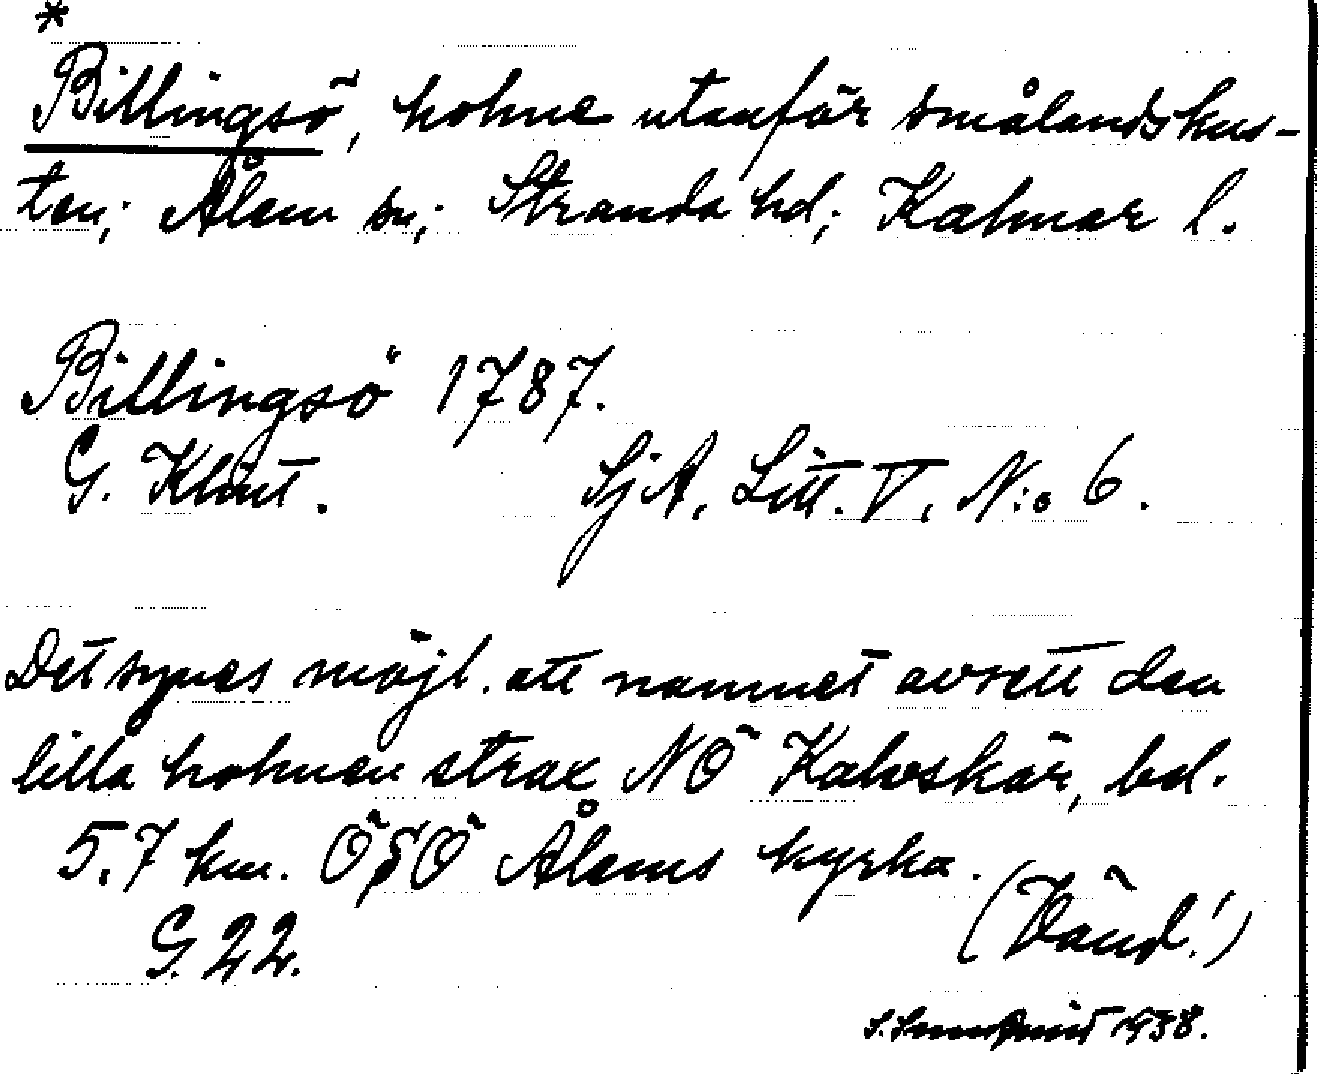 *
Billingsö, holme utanför smålandskus-
ten; Ålem sn; Stranda hd; Kalmar l.
Billingsö 1787.
G. Klint. SjA, Litt. V, N:o 6.
Det synes möjl. att namnet avsett den
lilla holmen strax NÖ Kalvskär, bel.
5.7 km. ÖSÖ Ålems kyrka.
G. 22. (Vänd!)
1938.